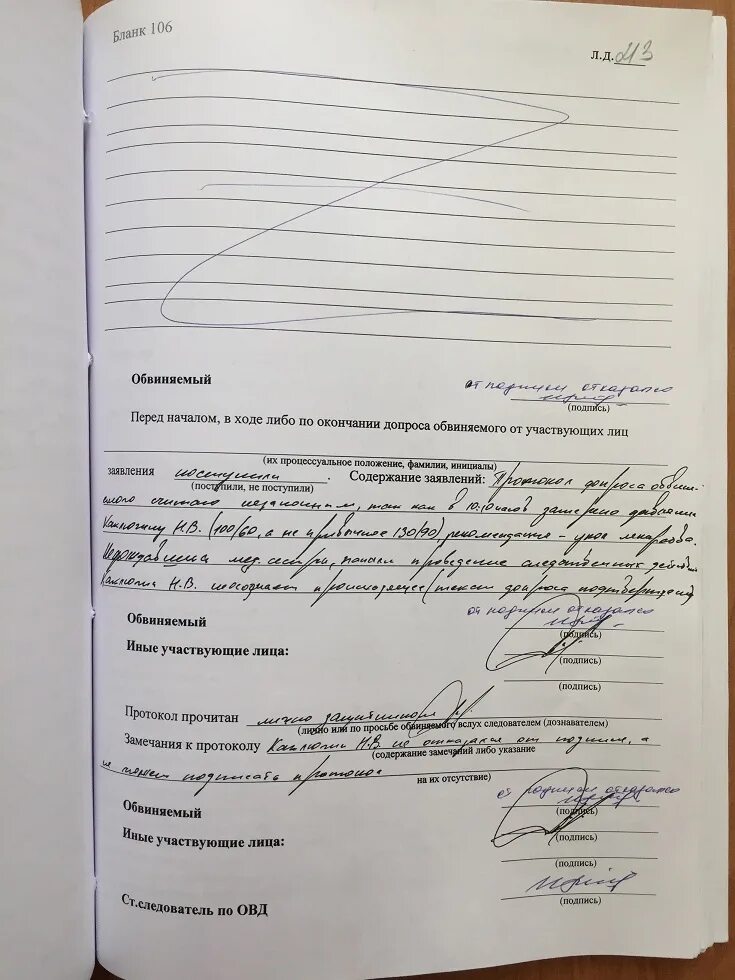 Бланк 106
Л.Д. 213
Обвиняемый
от подписи отказался
(подпись)
Перед началом, в ходе либо по окончании допроса обвиняемого от участвующих лиц
(их процессуальное положение, фамилии, инициалы)
заявления поступили. Содержание заявлений: Протокол допроса обвиня-
(поступили, не поступили)
емого считаю незаконным, так как в 10 часов замерено давление
Н.В. (100/60, а не привычное 130/90), рекомендация - укол лекарства.
мед. сестры, начали проведение следственных действий
Н.В. не осознает происходящее (текст допроса подтверждает)
Обвиняемый
от подписи отказался
(подпись)
Иные участвующие лица:
(подпись)
(подпись)
Протокол прочитан лично защитником
(лично или по просьбе обвиняемого вслух следователем (дознавателем)
Замечания к протоколу Н.В. не отказался от подписи, а
(содержание замечаний либо указание
не может подписать протокол
на их отсутствие)
Обвиняемый
от подписи отказался
(подпись)
Иные участвующие лица:
(подпись)
(подпись)
Ст.следователь по ОВД
(подпись)